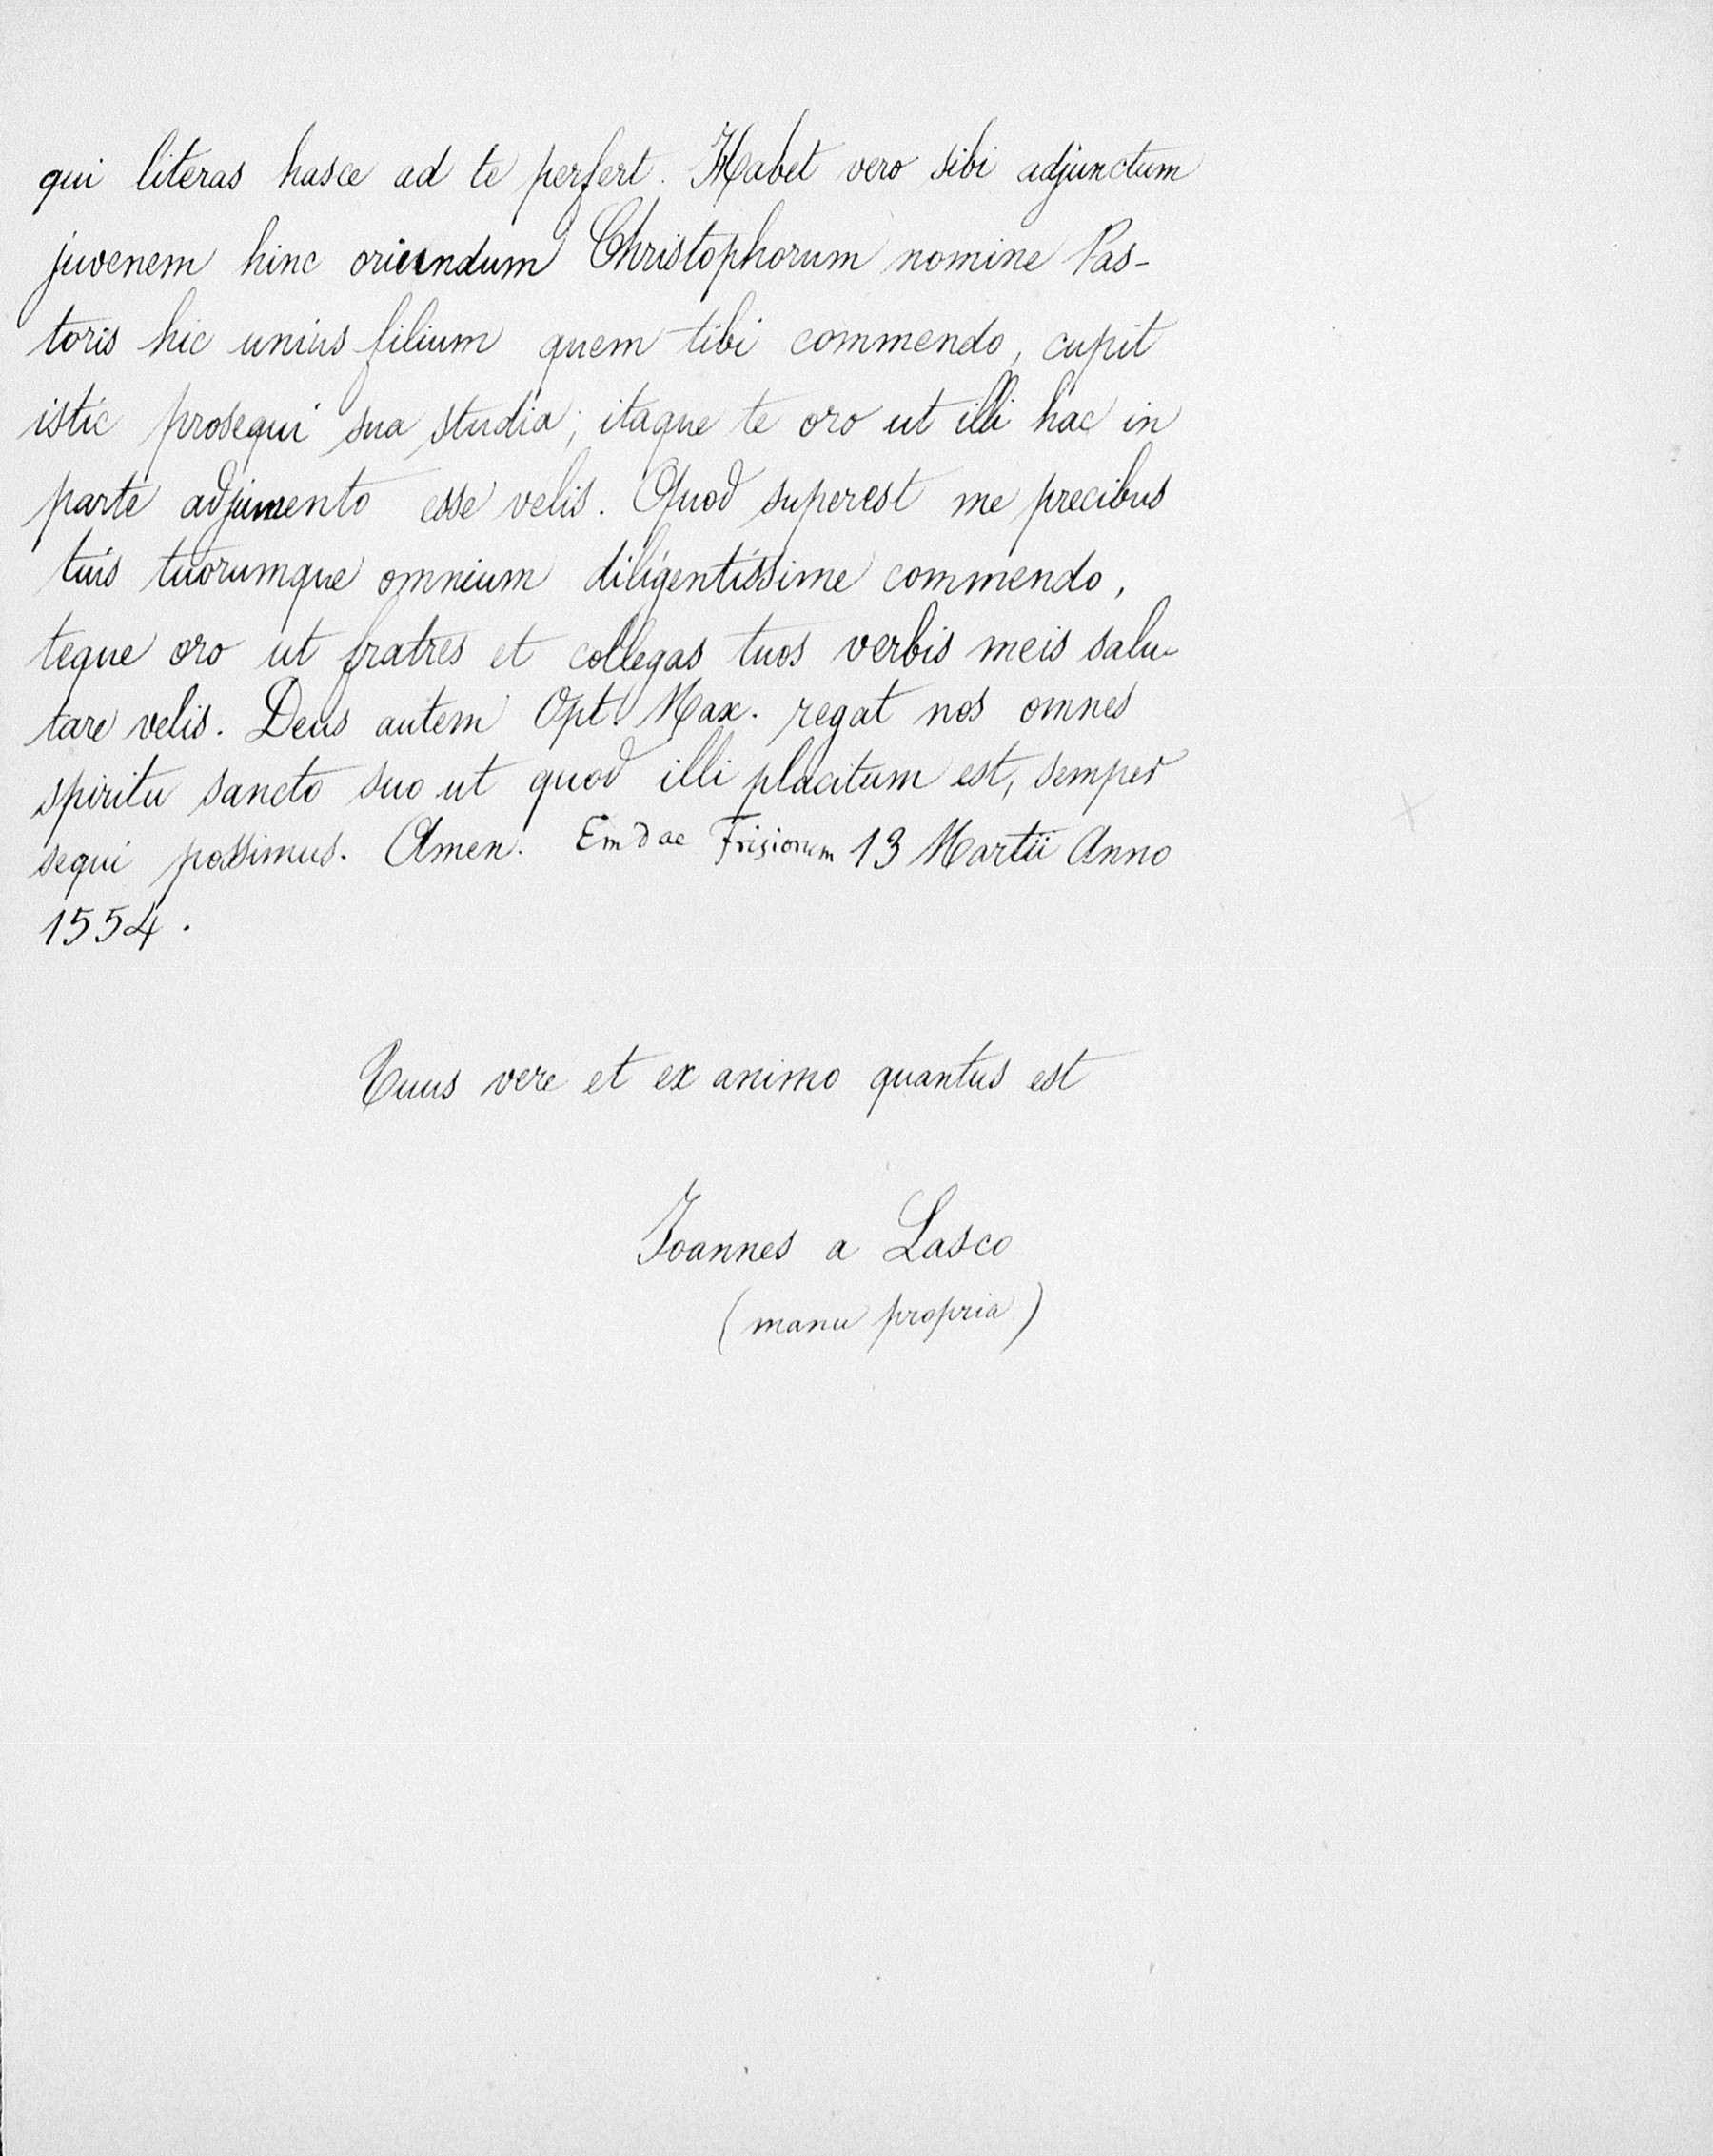 qui literas hasce ad te perfert. Habet vero sibi adjunctum
juvenem hinc oriundum Christophorum nomine Pas-
toris hic unius filium quem tibi commendo, cupit
istic prosequi sua studia; itaque te oro ut illi hac in
parte adjumento esse velis. Quod superest me precibus
tuis tuorumque omnium diligentissime commendo,
teque oro ut fratres et collegas tuos verbis meis salu-
tare velis. Deus autem Opt. Max. regat nos omnes
spiritu sancto suo ut quod illi placitum est, semper
sequi possimus. Amen. Emdae Frisionum 13 Martii Anno
1554.
Tuus vere et ex animo quantus est
Joannes a Lasco
(manu propria)